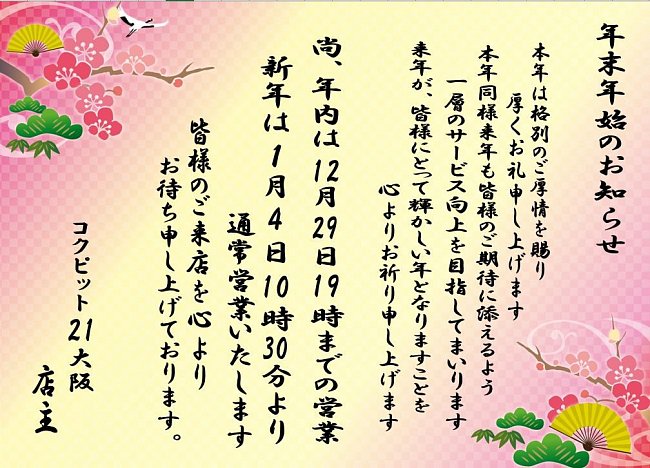 年末年始のお知らせ
本年は格別のご厚情を賜り
厚くお礼申し上げます
本年同様来年も皆様のご期待に添えるよう
一層のサービス向上を目指してまいります
来年が、皆様にとって輝かしい年となりますことを
心よりお祈り申し上げます
尚、年内は12月29日19時までの営業
新年は1月4日10時30分より
通常営業いたします
皆様のご来店を心より
お待ち申し上げております。
コクピット21大阪
店主